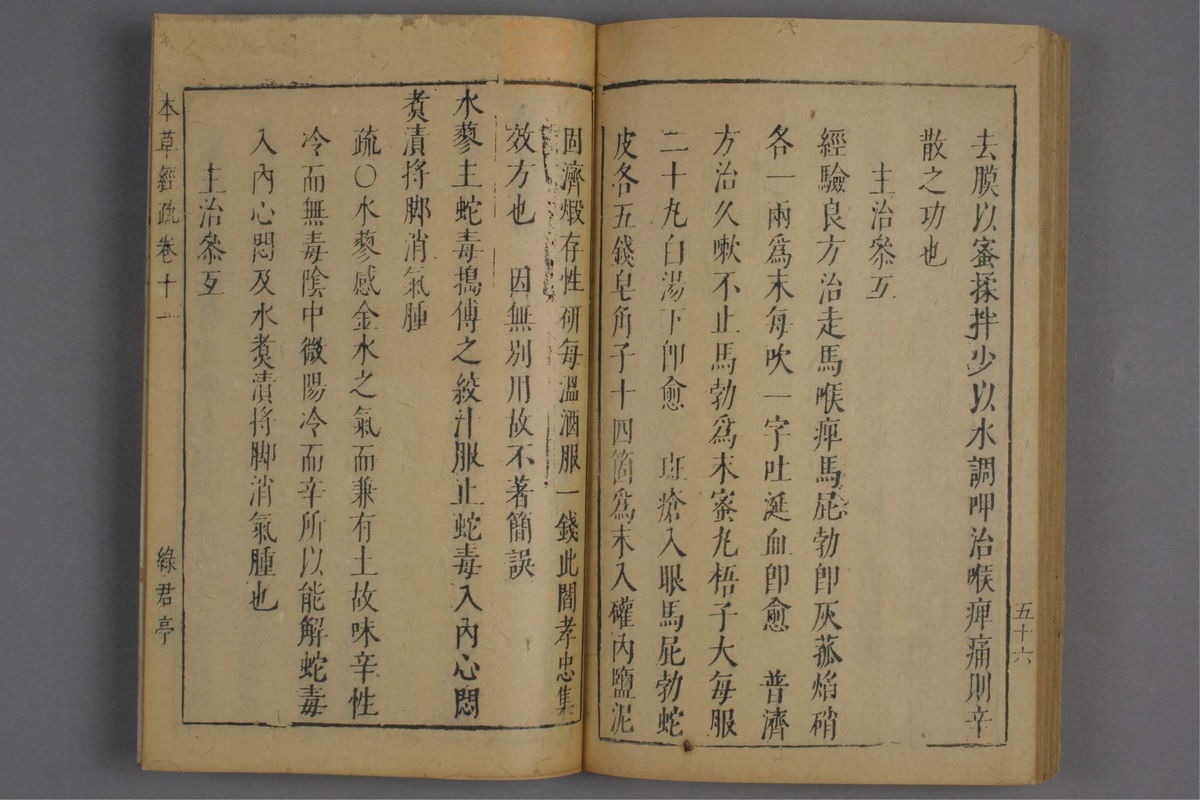 去膜以蜜揉拌少以水調呷治喉痺痛則辛
散之功也
主治叅互
經驗良方治走馬喉痺馬屁勃卽灰菰焰硝
各一兩爲末每吹一字吐涎血卽愈 普濟
方治久嗽不止馬勃爲末蜜丸梧子大每服
二十丸白湯下卽愈 斑瘡入眼馬屁勃蛇
皮各五錢皂角子十四箇爲末入罐內鹽泥
五十六
固濟煅存性研每溫酒服一錢此閻孝忠集
效方也 因無別用故不著簡誤
水蓼主蛇毒搗傅之絞汁服止蛇毒入內心悶
煑漬捋脚消氣腫
疏○水蓼感金水之氣而兼有土故味辛性
冷而無毒陰中微陽冷而辛所以能解蛇毒
入內心悶及水煑漬捋脚消氣腫也
主治叅互
本草經疏卷十一
綠君亭